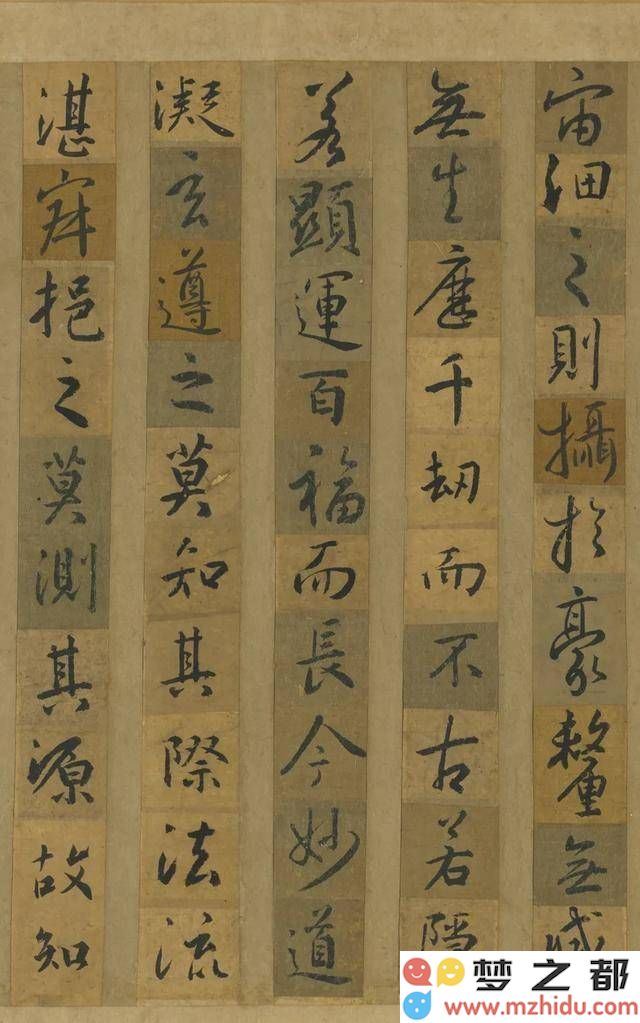 宙細之則攝於豪釐無滅
無生歷千劫而不古若隱
若顯運百福而長今妙道
凝玄遵之莫知其際法流
湛寂挹之莫測其源故知
梦之都
www.mzhidu.com